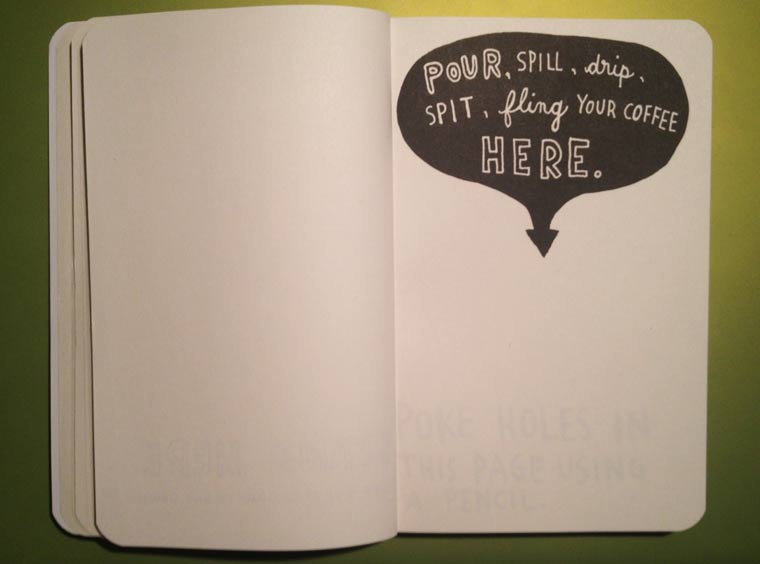 POUR, SPILL, drip,
SPIT, fling YOUR COFFEE
HERE.
POKE HOLES IN
THIS PAGE USING
A PENCIL.